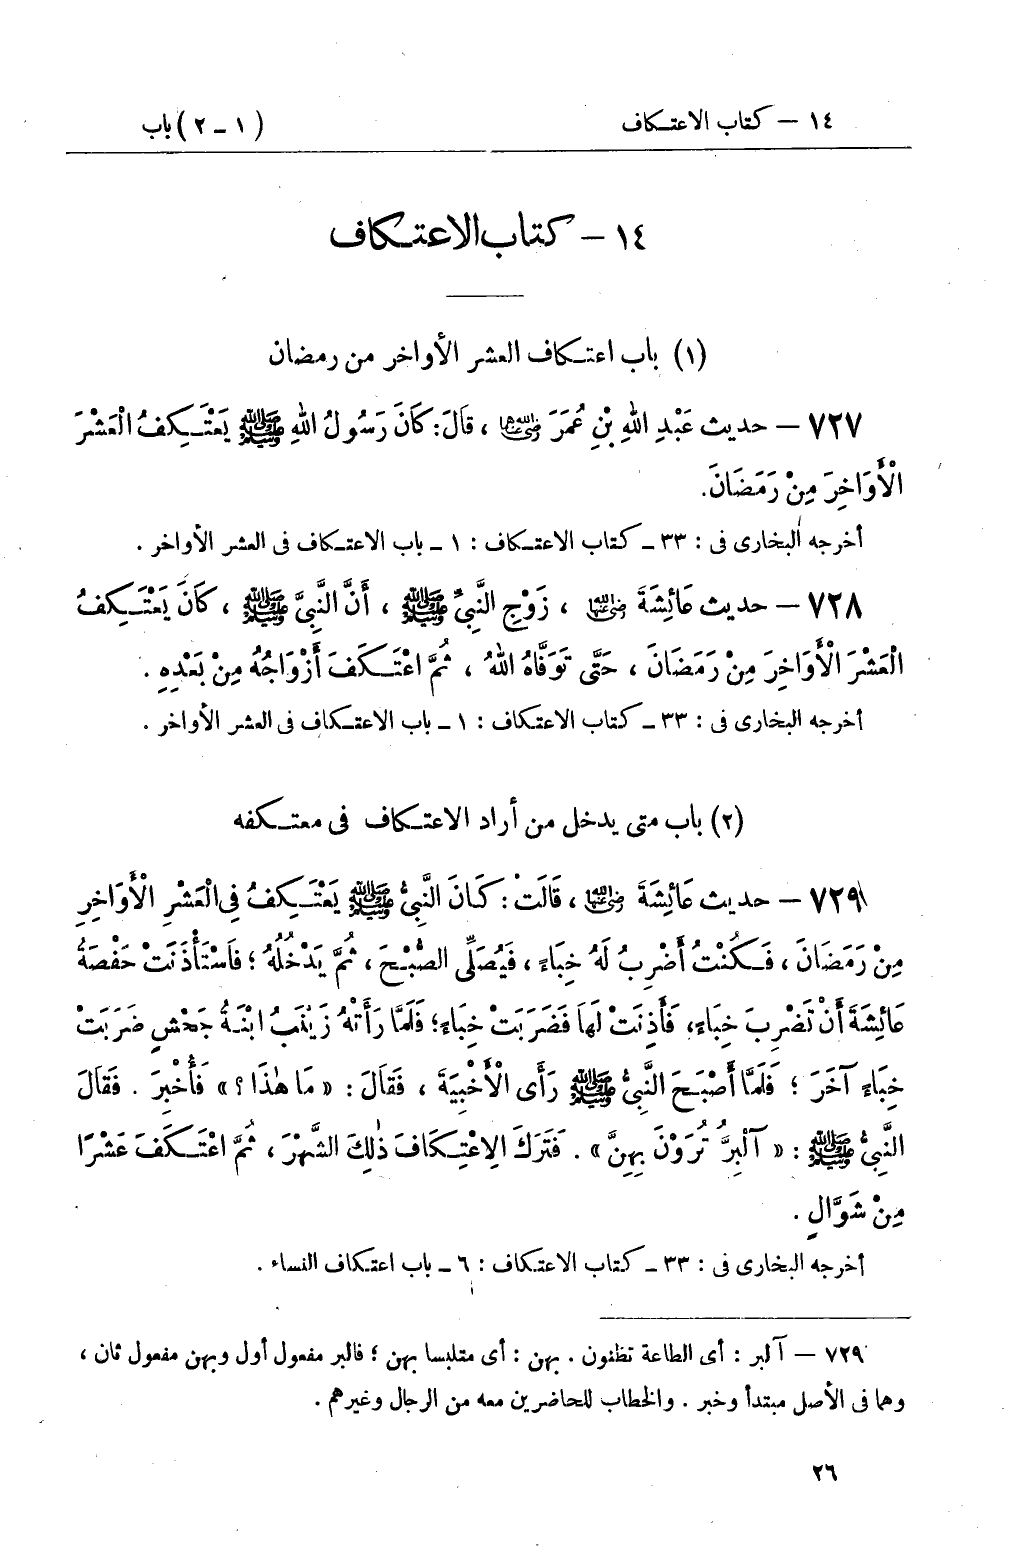 ١٤ – كتاب الاعتكاف (١ – ٢) باب
١٤ – كتاب الاعتكاف
(١) باب اعتكاف العشر الأواخر من رمضان
٧٢٧ – حديث عَبْدِ اللهِ بْنِ عُمَرَ رضي الله عنهما ، قَالَ: كَانَ رَسُولُ اللهِ ﷺ يَعْتَكِفُ الْعَشْرَ
الْأَوَاخِرَ مِنْ رَمَضَانَ.
أخرجه البخارى فى : ٣٣ – كتاب الاعتكاف : ١ – باب الاعتكاف فى العشر الأواخر .
٧٢٨ – حديث عَائِشَةَ رضي الله عنها ، زَوْجِ النَّبِيِّ ﷺ ، أَنَّ النَّبِيَّ ﷺ ، كَانَ يَعْتَكِفُ
الْعَشْرَ الْأَوَاخِرَ مِنْ رَمَضَانَ ، حَتَّى تَوَفَّاهُ اللهُ ، ثُمَّ اعْتَكَفَ أَزْوَاجُهُ مِنْ بَعْدِهِ .
أخرجه البخارى فى : ٣٣ – كتاب الاعتكاف : ١ – باب الاعتكاف فى العشر الأواخر .
(٢) باب متى يدخل من أراد الاعتكاف فى معتكفه
٧٢٩ – حديث عَائِشَةَ رضي الله عنها ، قَالَتْ : كَانَ النَّبِيُّ ﷺ يَعْتَكِفُ فِى الْعَشْرِ الْأَوَاخِرِ
مِنْ رَمَضَانَ ، فَكُنْتُ أَضْرِبُ لَهُ خِبَاءً ، فَيُصَلِّى الصُّبْحَ ، ثُمَّ يَدْخُلُهُ ؛ فَاسْتَأْذَنَتْ حَفْصَةُ
عَائِشَةَ أَنْ تَضْرِبَ خِبَاءً، فَأَذِنَتْ لَهَا فَضَرَبَتْ خِبَاءً؛ فَلَمَّا رَأَتْهُ زَيْنَبُ ابْنَةُ جَحْشٍ ضَرَبَتْ
خِبَاءً آخَرَ ؛ فَلَمَّا أَصْبَحَ النَّبِيُّ ﷺ رَأَى الْأَخْبِيَةَ ، فَقَالَ : « مَا هٰذَا ؟ » فَأُخْبِرَ . فَقَالَ
النَّبِيُّ ﷺ : « آلْبِرَّ تُرَوْنَ بِهِنَّ » . فَتَرَكَ الِاعْتِكَافَ ذٰلِكَ الشَّهْرَ ، ثُمَّ اعْتَكَفَ عَشْرًا
مِنْ شَوَّالٍ .
أخرجه البخارى فى : ٣٣ – كتاب الاعتكاف : ٦ – باب اعتكاف النساء .
٧٢٩ – آلبر : أى الطاعة تظنون . بهن : أى متلبسا بهن ؛ فالبر مفعول أول وبهن مفعول ثان ،
وهما فى الأصل مبتدأ وخبر . والخطاب للحاضرين معه من الرجال وغيرهم .
٢٦